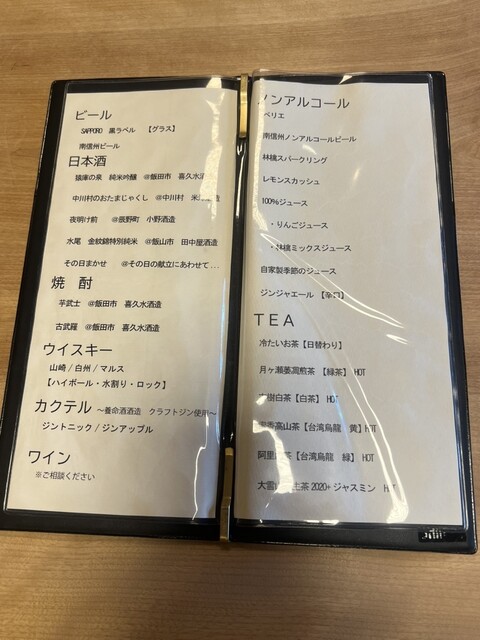 ビール
SAPPORO 黒ラベル 【グラス】
南信州ビール
日本酒
猿庫の泉 純米吟醸 @飯田市 喜久水酒造
中川村のおたまじゃくし @中川村 米澤酒造
夜明け前 @辰野町 小野酒造
水尾 金紋錦特別純米 @飯山市 田中屋酒造
その日まかせ @その日の献立にあわせて...
焼 酎
芋武士 @飯田市 喜久水酒造
古武羅 @飯田市 喜久水酒造
ウイスキー
山崎/白州/マルス
【ハイボール・水割り・ロック】
カクテル ～養命酒酒造 クラフトジン使用～
ジントニック/ジンアップル
ワイン
※ご相談ください
ノンアルコール
ペリエ
南信州ノンアルコールビール
林檎スパークリング
レモンスカッシュ
100%ジュース
・りんごジュース
・林檎ミックスジュース
自家製季節のジュース
ジンジャエール 【辛口】
TEA
冷たいお茶【日替わり】
月ヶ瀬萎凋煎茶 【緑茶】 HOT
樹白茶【白茶】 HOT
香高山茶【台湾烏龍 黄】HOT
阿里 茶【台湾烏龍 緑】 HOT
大雪 生茶 2020+ ジャスミン HOT